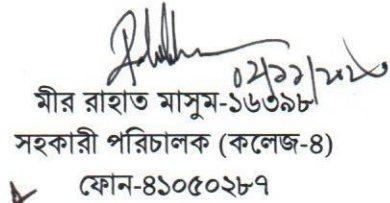 মীর রাহাত মাসুম-১৬৩৯৮
সহকারী পরিচালক (কলেজ-৪)
ফোন-৪১০৫০২৮৭